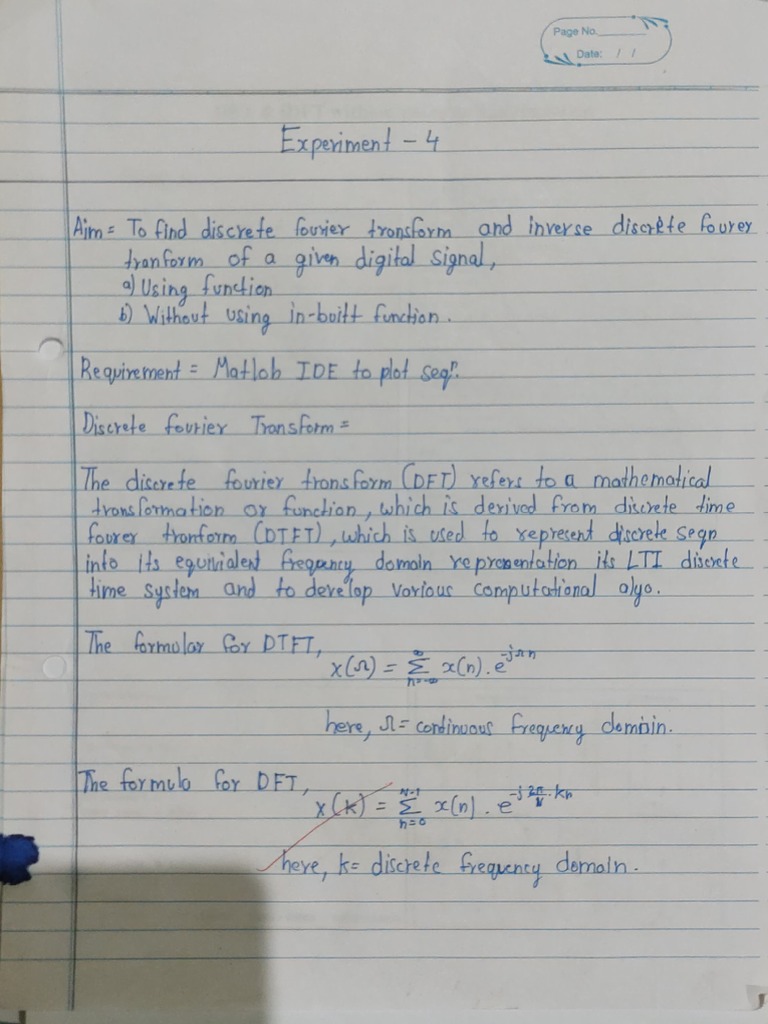 Page No.
Date: / /
Experiment - 4
Aim = To find discrete fourier transform and inverse discrete fourer
tranform of a given digital signal,
a) Using function
b) Without using in-built function.
Requirement = Matlab IDE to plot seqn.
Discrete fourier Transform =
The discrete fourier transform (DFT) refers to a mathematical
transformation or function, which is derived from discrete time
fourer tranform (DTFT), which is used to represent discrete seqn
into its equivalent frequency domain reprensentation its LTI discrete
time system and to develop various computational algo.
The formular for DTFT,
X(Ω) = Σ_{n=-∞}^{∞} x(n) . e^{-jΩn}
here, Ω = continuous frequency domain.
The formula for DFT,
X(k) = Σ_{n=0}^{N-1} x(n) . e^{-j 2π/N . kn}
here, k = discrete frequency domain.